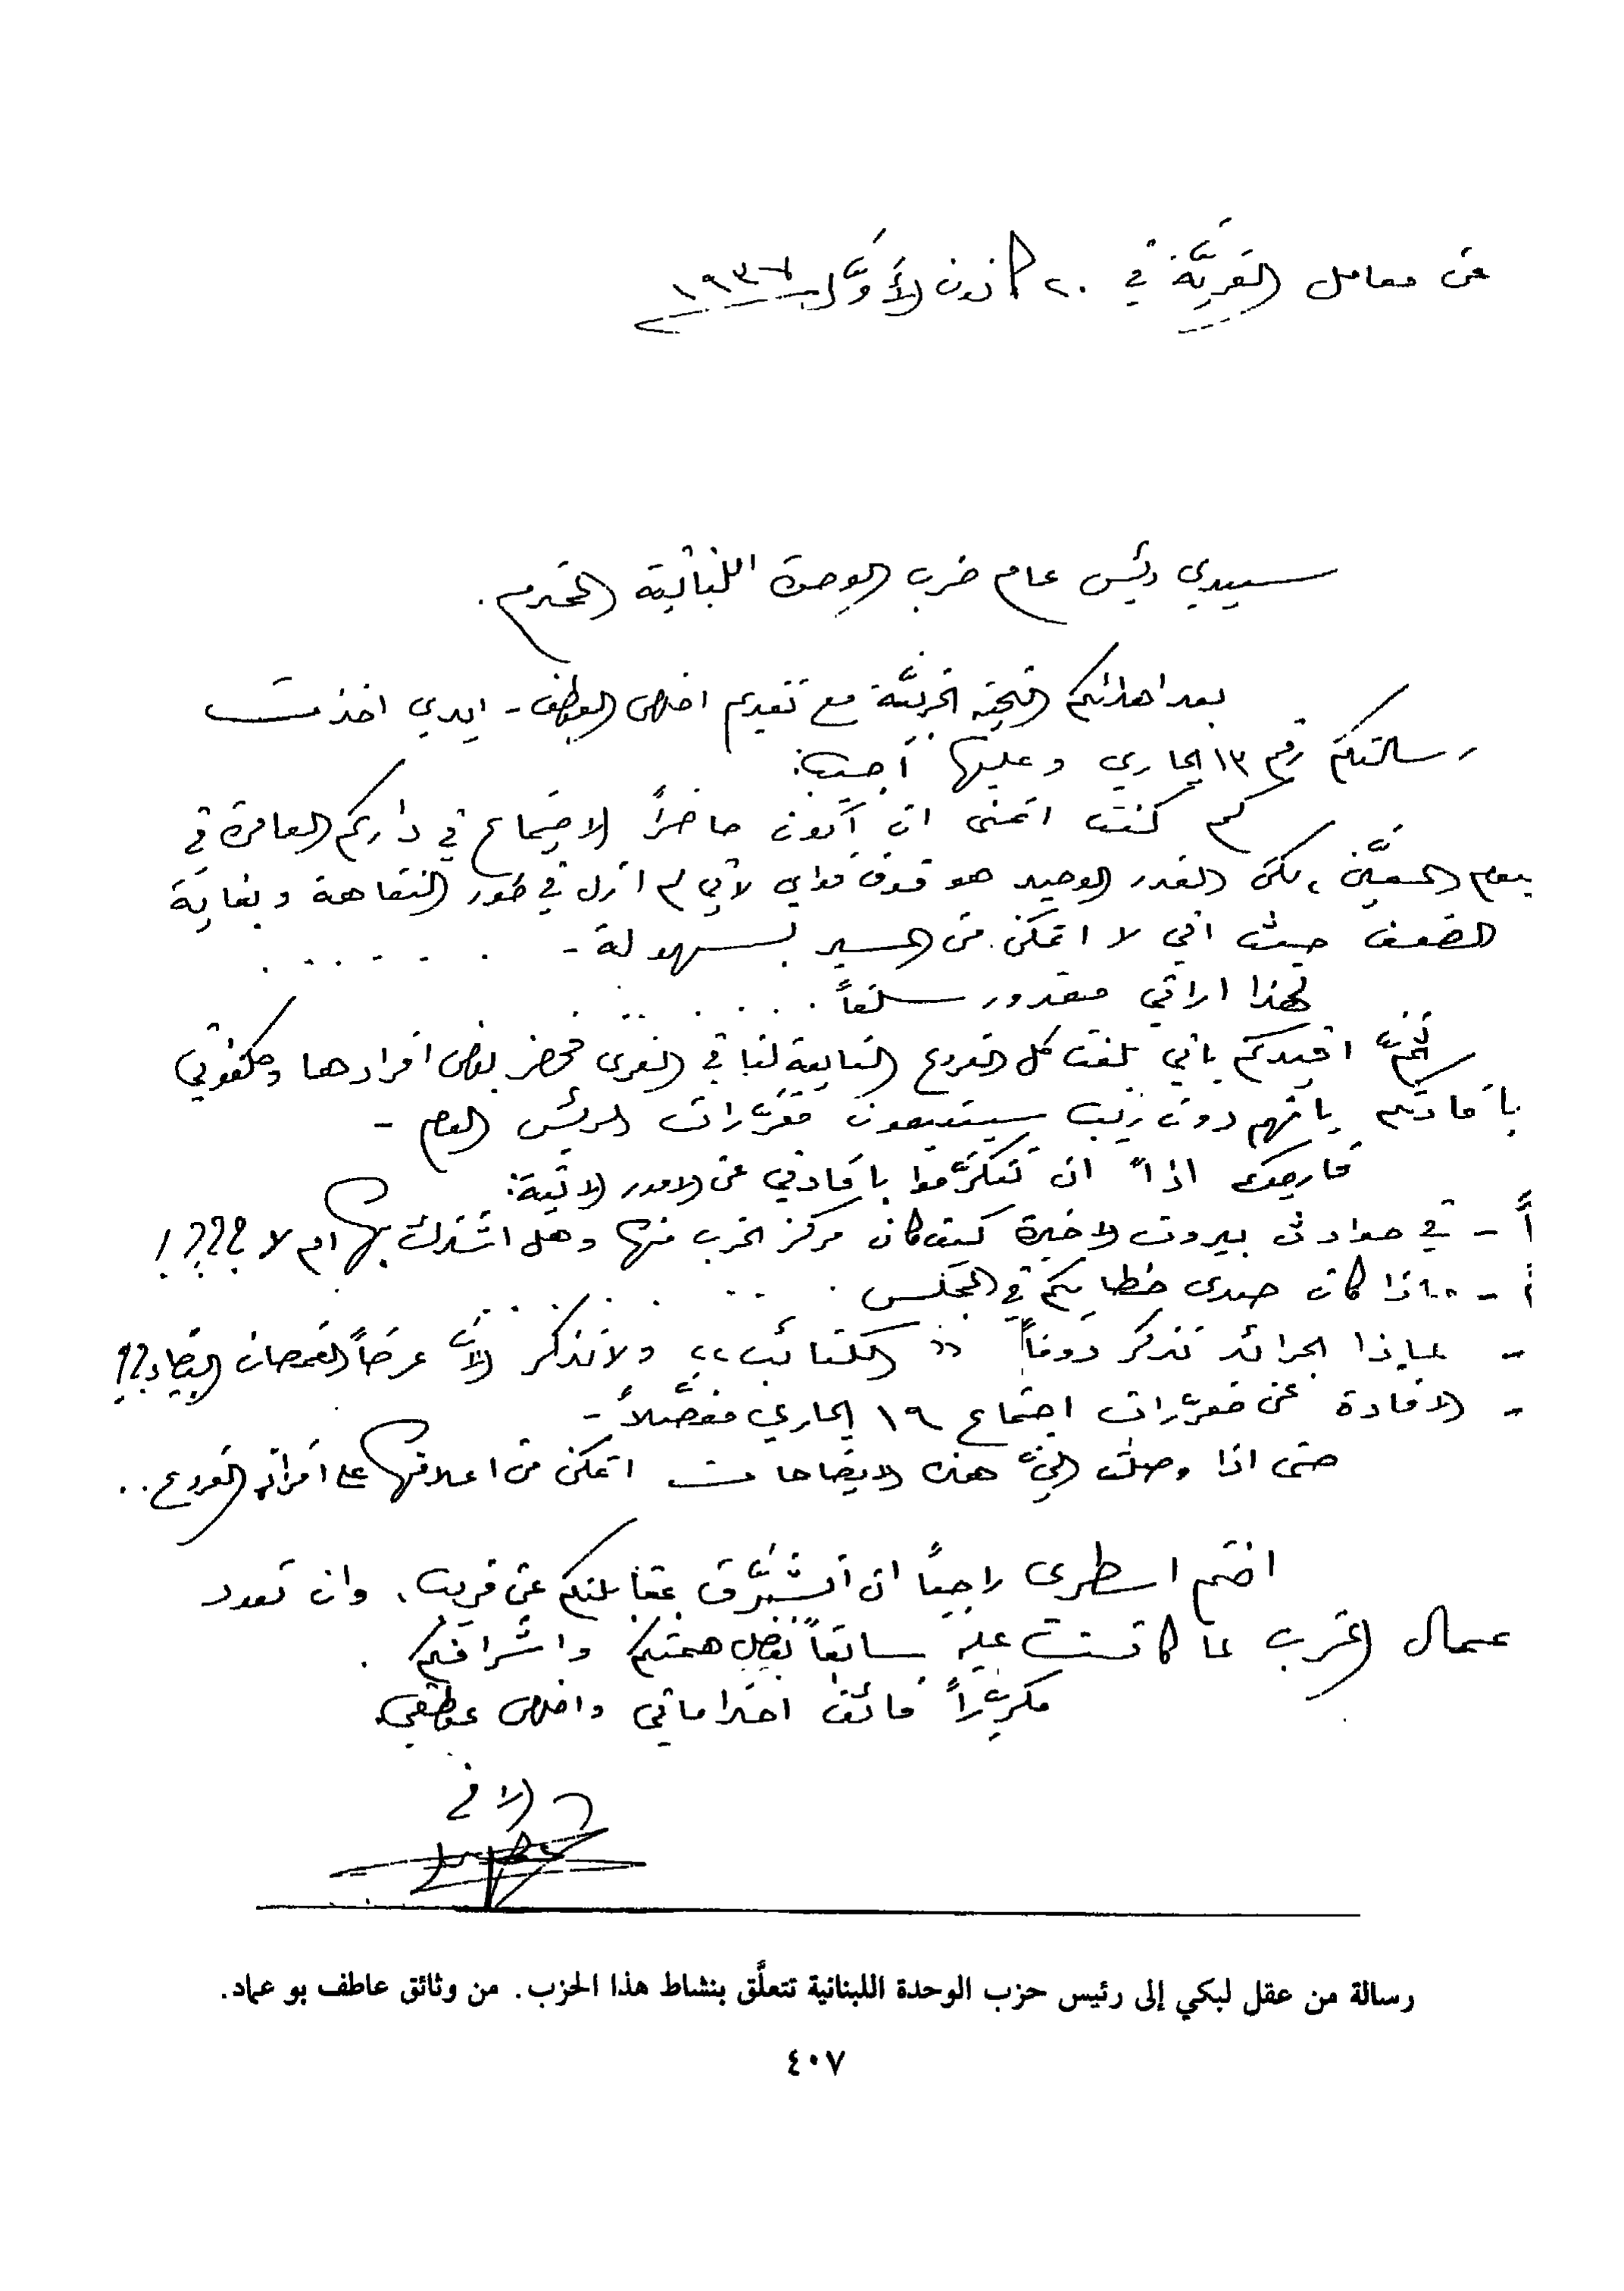 من معامل القريَّة في ٢٠ كانون الأوَّل ١٩٣٧
سيدي رئيس عام حزب الوحدة اللبنانية المحترم.
بعد اهدائكم التحية الحزبيَّة مع تقديم اخلص العواطف - ابدي اخذت
رسالتكم رقم ١٣ الجاري وعليها أجيب:
كم كنت اتمنى ان أكون حاضراً الاجتماع في داركم العامرة في
يوم المعيَّن، لكن العذر الوحيد هو فوق قواي لأني لم ازل في طور النقاهة وبغاية
الضعف حيث اني لا اتمكن من السير بسهولة - . . . . . .
لهذا اراني معذور سلفاً . . . . . .
ثمَّ افيدكم باني بلغت كل الفروع التابعة لنا في القرى فحضر بعض افرادها وكلفوني
بافادتكم بانهم دون ريب سيتبعون مقرَّرات الرئيس العام -
فارجوك اذاً ان تتكرَّموا بافادتي عن الامور الاتية:
أً - في حوادث بيروت الاخيرة كيف كان مركز الحزب منها وهل اشترك بها ام لا ؟؟؟!
- ماذا كان صدى خطابكم في المجلس . . . . . . .
- لماذا الجرائد تذكر دوماً «الكتائب» ولا تذكر الآن عرضاً القمصان البيضاء؟؟
- الافادة عن مقرَّرات اجتماع ١٩ الجاري مفصَّلاً -
حتى اذا وصلت اليَّ هذه الايضاحات اتمكن من اعلانها على افراد الفروع . .
اختم اسطري راجياً ان أتشرَّف بمقابلتكم عن قريب. وان تعود
اعمال الحزب لما كانت عليه سابقاً بفضل همتكم واشرافكم .
مكرِّراً فائق احتراماتي واخلص عواطفي.
الاخ
رسالة من عقل لبكي إلى رئيس حزب الوحدة اللبنانية تتعلَّق بنشاط هذا الحزب. من وثائق عاطف بو عماد.
٤٠٧